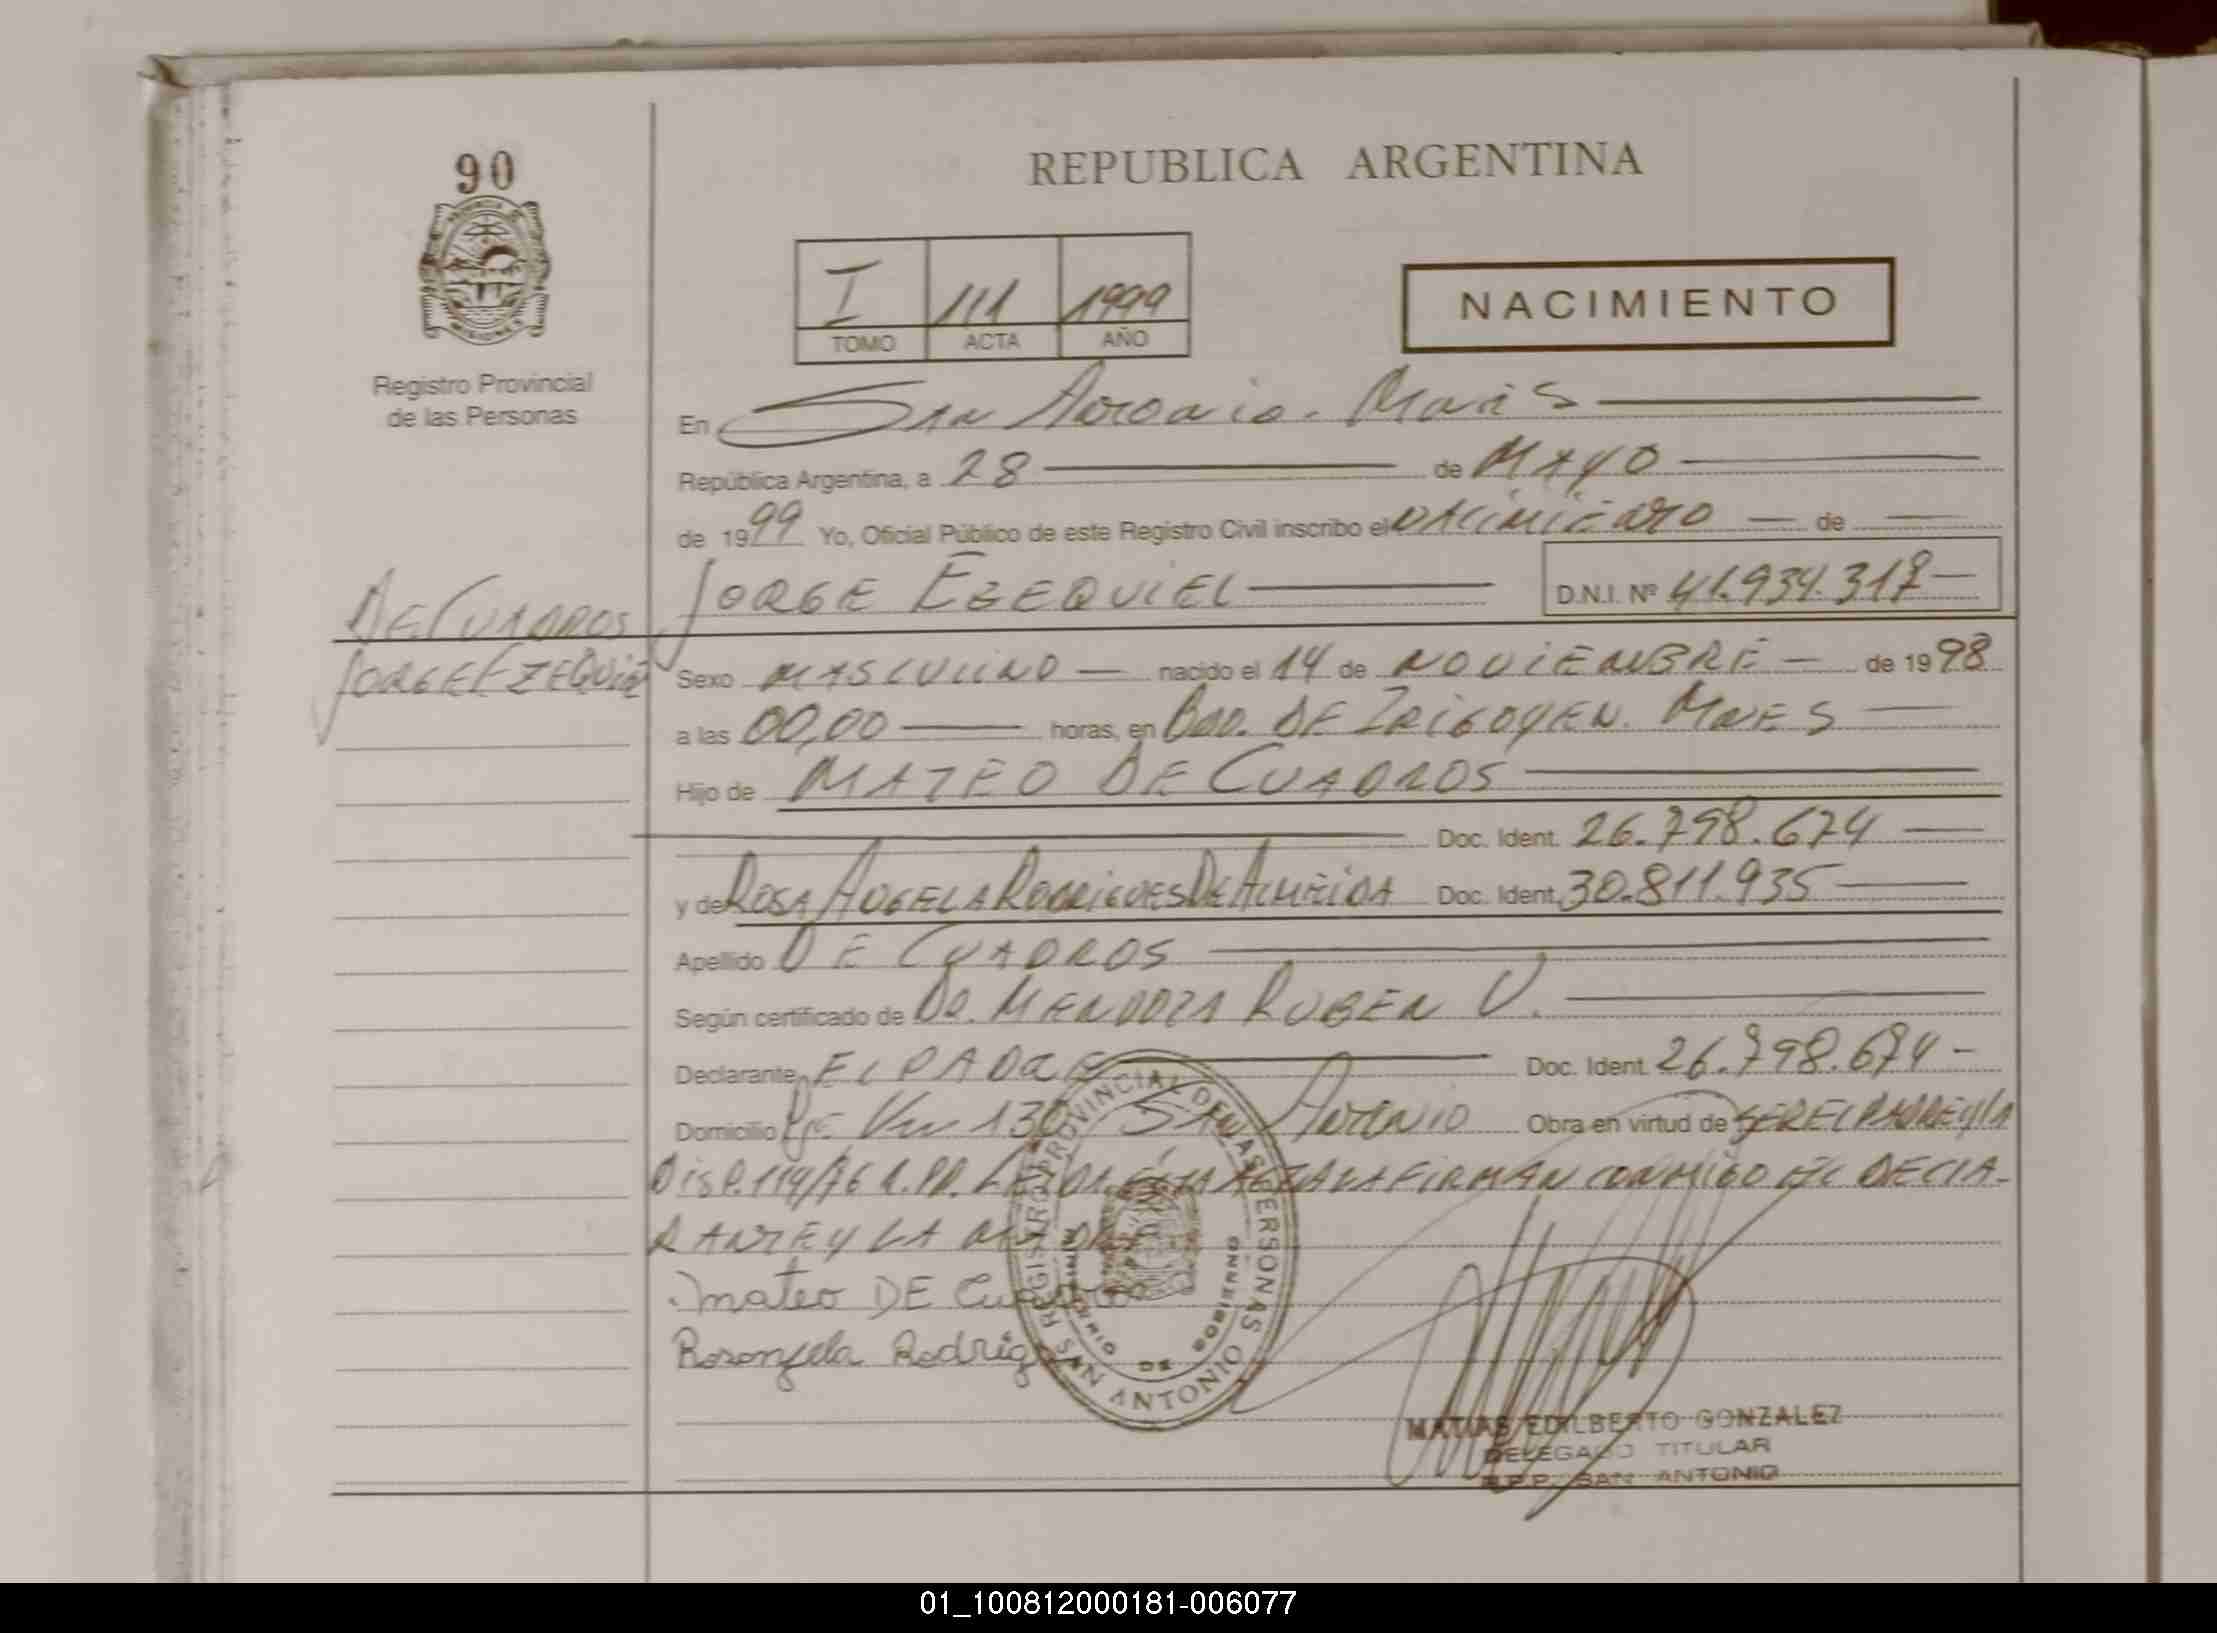 90
REPUBLICA ARGENTINA
I 111 1999
TOMO ACTA AÑO
NACIMIENTO
Registro Provincial
de las Personas
En San Antonio. Mnes
República Argentina, a 28 de MAYO
de 1999 Yo, Oficial Público de este Registro Civil inscribo el NACIMIENTO de
JORGE EZEQUIEL D.N.I. Nº 41.934.317
DE CUADROS
JORGE EZEQUIEL
Sexo MASCULINO nacido el 14 de NOVIEMBRE de 1998
a las 00,00 horas, en Bdo. DE IRIGOYEN. MNES
Hijo de MATEO DE CUADROS
Doc. Ident. 26.798.674
y de ROSA ANGELA RODRIGUES DE ALMEIDA Doc. Ident. 30.811.935
Apellido DE CUADROS
Según certificado de DR. MENDOZA RUBEN V.
Declarante EL PADRE Doc. Ident. 26.798.674
Domicilio Pje. Km 130 SAN ANTONIO Obra en virtud de SER EL PADRE Y LA
DISP. 119/76 R.PP. LEIDA EL ACTA LA FIRMAN CONMIGO EL DECLA-
RANTE Y LA MADRE
mateo DE Cuadros
Rosangela Rodrig
REGISTRO PROVINCIAL DE LAS PERSONAS
MINISTERIO DE GOBIERNO
SAN ANTONIO
MATIAS EDILBERTO GONZALEZ
DELEGADO TITULAR
R.P.P. SAN ANTONIO
01_100812000181-006077